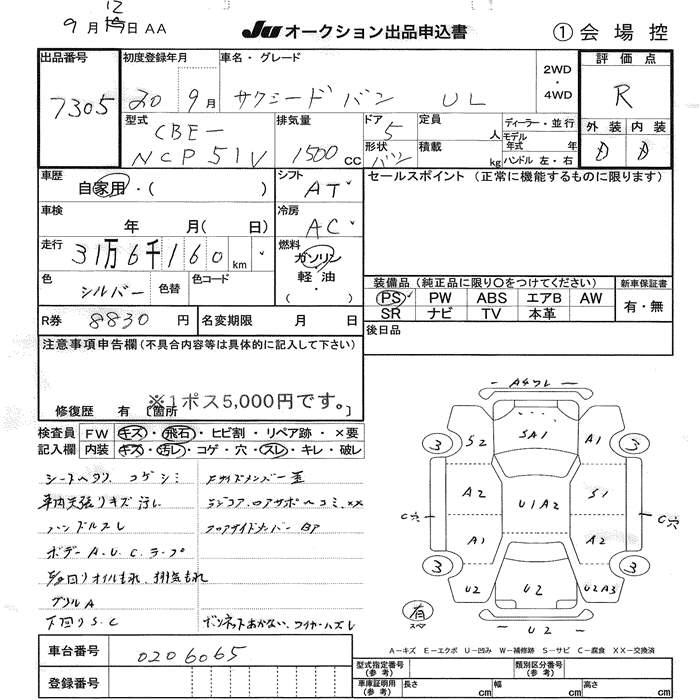 9月12日 AA
JU オークション出品申込書
① 会場控
出品番号
7305
初度登録年月
20 9月
車名・グレード
サクシードバン UL
2WD
・
4WD
評価点
R
外装 内装
D D
型式
CBE-
NCP51V
排気量
1500 CC
ドア
5
形状
バン
定員
人
積載
kg
ディーラー・並行
モデル
年式 年
ハンドル 左・右
車歴
自家用・( )
シフト
AT
セールスポイント (正常に機能するものに限ります)
車検
年 月( 日)
冷房
AC
走行
31万6千160km
燃料
ガソリン
軽油
・
( )
色
シルバー
色替
色コード
装備品 (純正品に限り○をつけてください)
PS PW ABS エアB AW
SR ナビ TV 本革
新車保証書
有・無
R券 8830 円
名変期限 月 日
後日品
注意事項申告欄 (不具合内容等は具体的に記入して下さい)
※1ポス5,000円です。
修復歴 有 〔箇所
検査員
記入欄
FW キズ・飛石・ヒビ割・リペア跡・×要
内装 キズ・汚レ・コゲ・穴・スレ・キレ・破レ
シートヘタリ コゲ シミ
車内天張リキズ 汚レ
ハンドルスレ
ボデー A.U.C.ラープ
下回リオイルもれ、排気もれ
グリルA
下回リS.C
Fサイドメンバー歪
ラジコア、ロアサポヘコミ、××
フロアサイドメンバーBP
ボンネットあかない、ワイヤーハズレ
A4ワレ
3 S2 SA1 A1 3
A2 U1A2 S1
C穴 C穴
A1 A2
3 U2 U2 U2A3 3
有
スペア
U2
A-キズ E-エクボ U-凹み W-補修跡 S-サビ C-腐食 XX-交換済
車台番号
0206065
登録番号
型式指定番号
(参考)
類別区分番号
(参考)
車庫証明用
(参考)
長さ cm 幅 cm 高さ cm